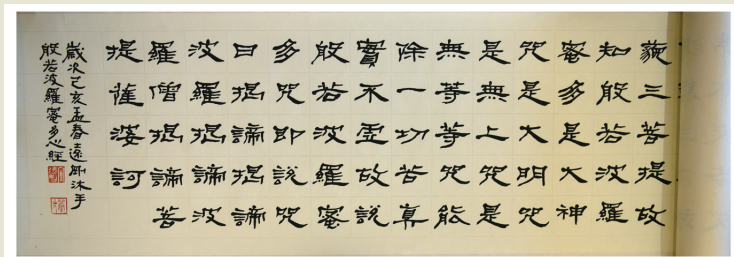 藐三菩提故
知般若波羅
蜜多是大神
咒是大明咒
是無上咒是
無等等咒能
除一切苦真
實不虛故說
般若波羅蜜
多咒即說咒
曰揭諦揭諦
波羅揭諦波
羅僧揭諦菩
提薩婆訶
歲次己亥孟春遠沐手
般若波羅蜜多心經